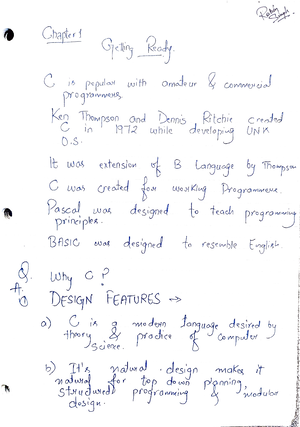 Chapter 1
Getting Ready.
C is popular with amateur & commercial
programmers.
Ken Thompson and Dennis Ritchie created
C in 1972 while developing UNIX
O.S.
It was extension of B Language by Thompson
C was created for working Programmers.
Pascal was designed to teach programming
principles.
BASIC was designed to resemble English.
Q. Why C ?
A.
① DESIGN FEATURES →
a) C is a modern language desired by
theory & practice of computer
science.
b) It's natural design makes it
natural for top down planning,
structured programming & modular
design.